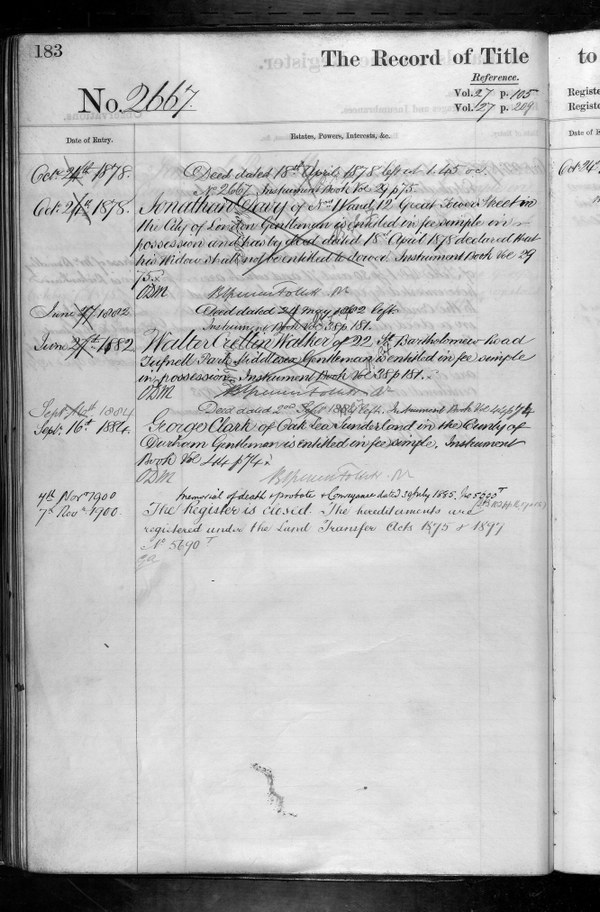 183
The Record of Title
to
Reference.
Vol. 27 p. 105
Vol. 27 p. 209
No. 2667
Registe
Registe
Date of Entry.
Estates, Powers, Interests, &c.
Date of E
Oct. 24th 1878.
Deed dated 18th April 1878 left at 1.45 oc.
Oct. 24
No 2667 Instrument Book Vol 29 p 75.
Oct. 24th 1878.
Jonathan Cleary of Nos 11 and 12 Great Tower Street in
the City of London Gentleman is entitled in fee simple in
possession and has by deed dated 18th April 1878 declared that
his widow shall not be entitled to dower. Instrument Book Vol 29
75.
June 1882
Deed dated 24 May 1882 left.
Instrument Book Vol 38 p 181.
June 27th 1882
Walter Crellin Walker of 22 St Bartholomew Road
Tufnell Park Middlesex Gentleman is entitled in fee simple
in possession. Instrument Book Vol 38 p 181.
Sept. 16th 1884
Deed dated 2nd Sept 1884 left. Instrument Book Vol 44 p 74
Sept. 16th 1884.
George Clark of Oak Lea Sunderland in the County of
Durham Gentleman is entitled in fee simple. Instrument
Book Vol 44 p 74.
4th Novr 1900
Memorial of death & probate & Conveyance dated 30 July 1885.
7th Novr 1900.
The Register is closed. The hereditaments are
registered under the Land Transfer Acts 1875 & 1897
No 5690 T